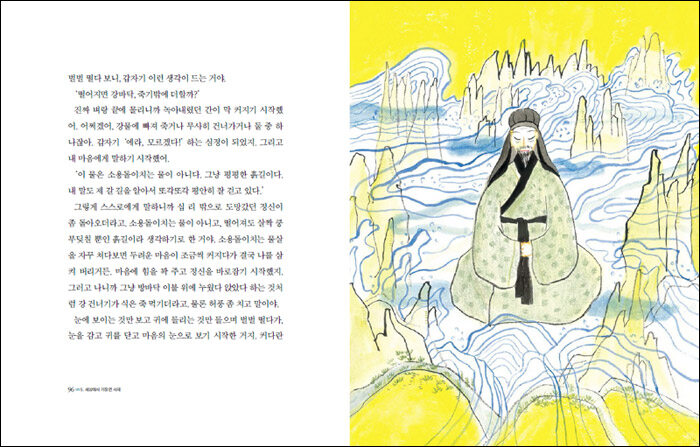 벌벌 떨다 보니, 갑자기 이런 생각이 드는 거야.
'떨어지면 강바닥, 죽기밖에 더할까?'
진짜 벼랑 끝에 몰리니까 녹아내렸던 간이 막 커지기 시작했
어. 어쩌겠어, 강물에 빠져 죽거나 무사히 건너가거나 둘 중 하
나잖아. 갑자기 '에라, 모르겠다!' 하는 심정이 되었지. 그리고
내 마음에게 말하기 시작했어.
'이 물은 소용돌이치는 물이 아니다. 그냥 평평한 흙길이다.
내 말도 제 갈 길을 알아서 또각또각 평안히 잘 걷고 있다.'
그렇게 스스로에게 말하니까 십 리 밖으로 도망갔던 정신이
좀 돌아오더라고. 소용돌이치는 물이 아니고, 떨어져도 살짝 쿵
부딪칠 뿐인 흙길이라 생각하기로 한 거야. 소용돌이치는 물살
을 자꾸 쳐다보면 두려운 마음이 조금씩 커지다가 결국 나를 삼
켜 버리거든. 마음에 힘을 꽉 주고 정신을 바로잡기 시작했지.
그러고 나니까 그냥 방바닥 이불 위에 누웠다 앉았다 하는 것처
럼 강 건너기가 식은 죽 먹기더라고. 물론 허풍 좀 치고 말이야.
눈에 보이는 것만 보고 귀에 들리는 것만 들으며 벌벌 떨다가,
눈을 감고 귀를 닫고 마음의 눈으로 보기 시작한 거지. 커다란
96
세상에서 가장 큰 서재